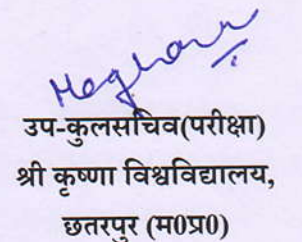 उप-कुलसचिव(परीक्षा)
श्री कृष्णा विश्वविद्यालय,
छतरपुर (म0प्र0)